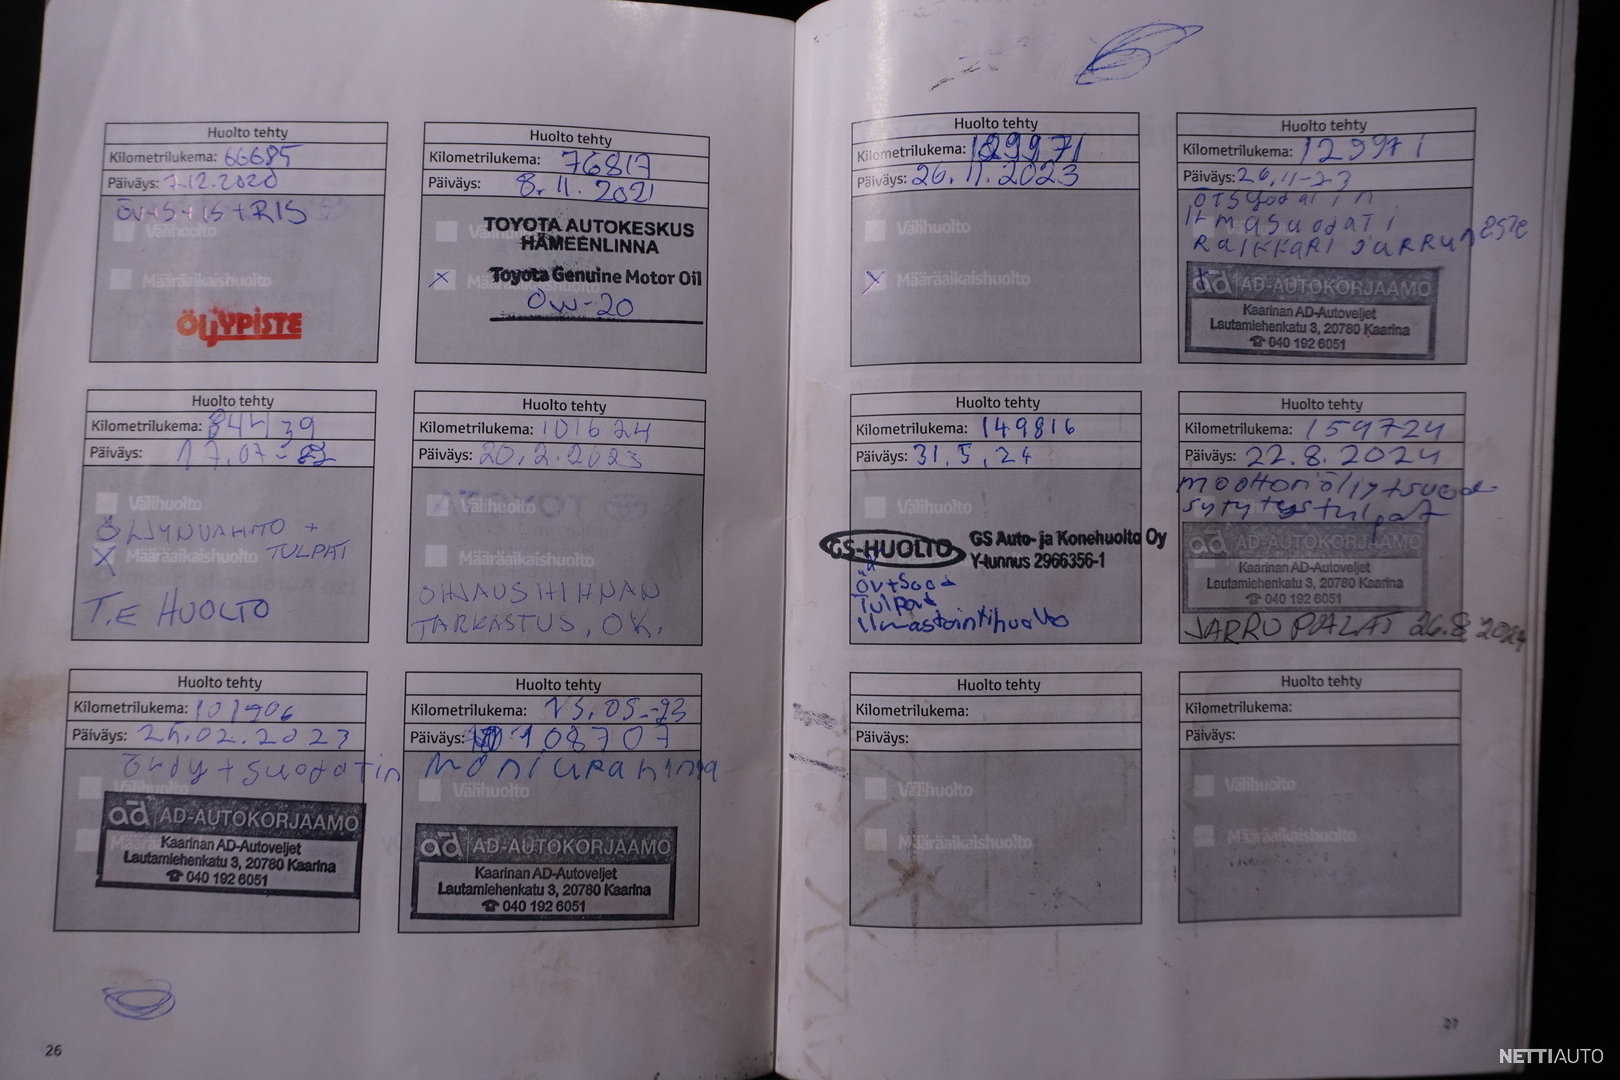 Huolto tehty
Kilometrilukema: 66685
Päiväys: 7.12.2020
öv+S+is+RIS
Välihuolto
Määräaikaishuolto
ÖLJYPISTE
Huolto tehty
Kilometrilukema: 76817
Päiväys: 8.11.2021
TOYOTA AUTOKESKUS
HÄMEENLINNA
Toyota Genuine Motor Oil
0w-20
Huolto tehty
Kilometrilukema: 84439
Päiväys: 17.07-
Välihuolto
ÖLJYNVAIHTO +
Määräaikaishuolto TULPAT
T.E HUOLTO
Huolto tehty
Kilometrilukema: 101624
Päiväys: 20.2.2023
Välihuolto
Määräaikaishuolto
OHJAUSHIHNAN
TARKASTUS, OK.
Huolto tehty
Kilometrilukema: 101906
Päiväys: 25.02.2023
öljy + suodatin
ad AD-AUTOKORJAAMO
Kaarinan AD-Autoveljet
Lautamiehenkatu 3, 20780 Kaarina
☎ 040 192 6051
Huolto tehty
Kilometrilukema: 15.05.-23
Päiväys: 108707
Moniurahihna
Välihuolto
ad AD-AUTOKORJAAMO
Kaarinan AD-Autoveljet
Lautamiehenkatu 3, 20780 Kaarina
☎ 040 192 6051
26
Huolto tehty
Kilometrilukema: 129971
Päiväys: 26.11.2023
Välihuolto
Määräaikaishuolto
Huolto tehty
Kilometrilukema: 129971
Päiväys: 26.11-23
ilmasuodati
Raikkari JARRUneste
ad AD-AUTOKORJAAMO
Kaarinan AD-Autoveljet
Lautamiehenkatu 3, 20780 Kaarina
☎ 040 192 6051
Huolto tehty
Kilometrilukema: 149816
Päiväys: 31.5.24
GS-HUOLTO GS Auto- ja Konehuolto Oy
Y-tunnus 2966356-1
öv+Suod
Tulpat
Ilmastointihuolto
Huolto tehty
Kilometrilukema: 159724
Päiväys: 22.8.2024
moottoriöljy+suod
sytytystulpat
ad AD-AUTOKORJAAMO
Kaarinan AD-Autoveljet
Lautamiehenkatu 3, 20780 Kaarina
☎ 040 192 6051
JARRUPALAT 26.8 2024
Huolto tehty
Kilometrilukema:
Päiväys:
Välihuolto
Määräaikaishuolto
Huolto tehty
Kilometrilukema:
Päiväys:
Välihuolto
Määräaikaishuolto
27
NETTIAUTO